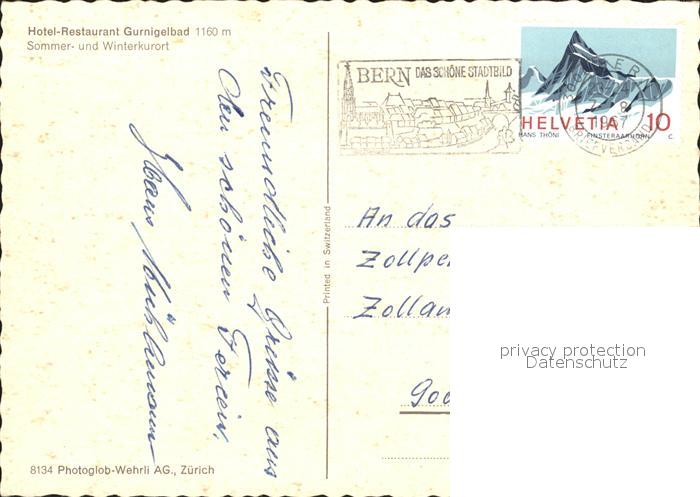 Hotel-Restaurant Gurnigelbad 1160 m
Sommer- und Winterkurort
Freundliche Grüsse aus
den schönen Ferien.
Hans
Printed in Switzerland
8134 Photoglob-Wehrli AG., Zürich
BERN DAS SCHÖNE STADTBILD
HELVETIA 10
HANS THÖNI FINSTERAARHORN C.
BERN
1967
BRIEFVERSAND
An das
Zollpe
Zollam
Go
privacy protection
Datenschutz